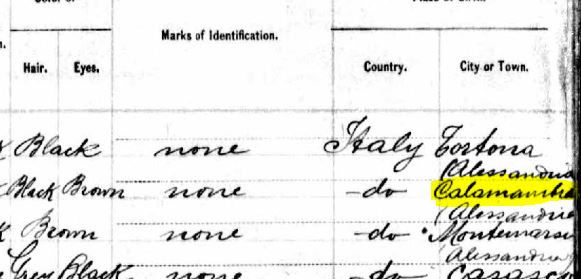 Marks of Identification.
Hair. Eyes. Country. City or Town.
Black none Italy Tortona
(Alessandria
Black Brown none -do Calamandra
(Alessandria
Brown none -do Montemarzo
Alessandria
Grey Black none do